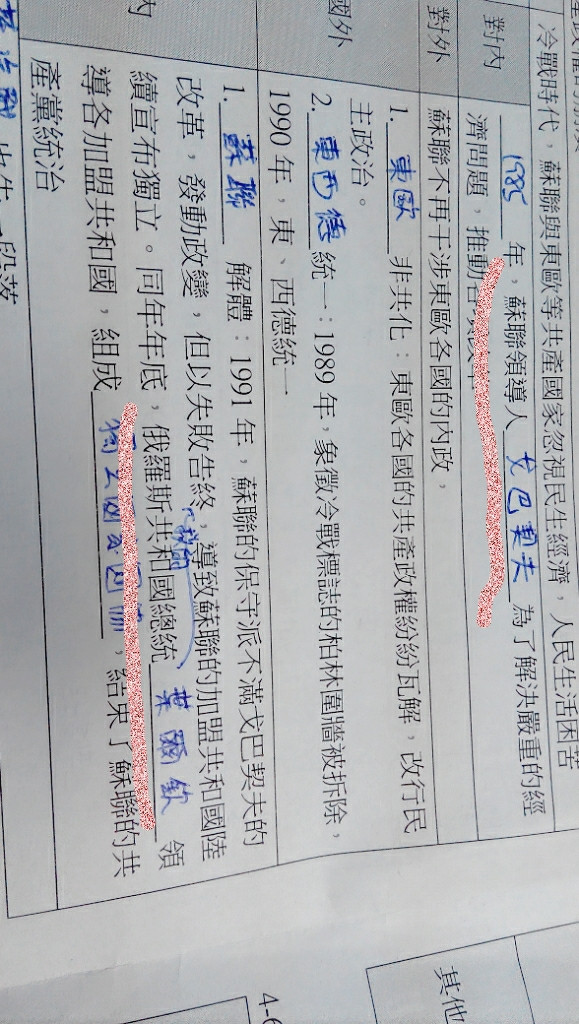 冷戰時代，蘇聯與東歐等共產國家忽視民生經濟，人民生活困苦
對內
1985年，蘇聯領導人戈巴契夫為了解決嚴重的經
濟問題，推動
對外
蘇聯不再干涉東歐各國的內政，
國外
1. 東歐 非共化：東歐各國的共產政權紛紛瓦解，改行民
主政治。
2. 東西德統一：1989年，象徵冷戰標誌的柏林圍牆被拆除，
1990年，東、西德統一
內
1. 蘇聯 解體：1991年，蘇聯的保守派不滿戈巴契夫的
改革，發動政變，但以失敗告終，導致蘇聯的加盟共和國陸
續宣布獨立。同年年底，俄羅斯共和國總統 葉爾欽 領
導各加盟共和國，組成，結束了蘇聯的共
產黨統治
其他
4-6